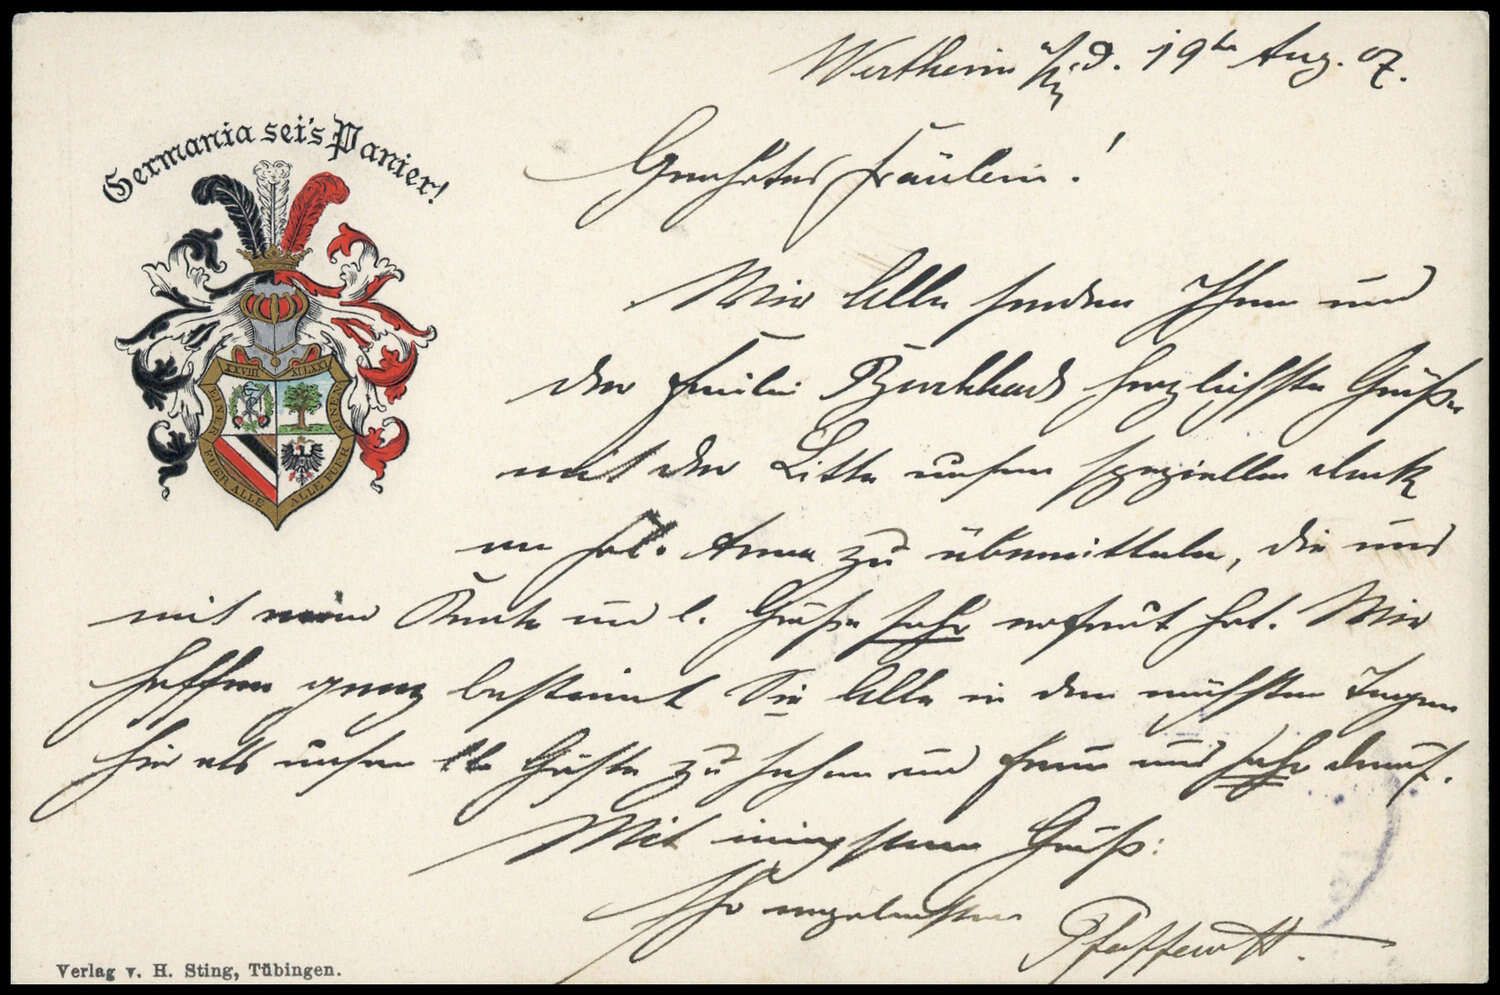 Wertheim a/M. d. 19ten Aug. 07.
Germania sei's Panier!
Geehrtes Fräulein!
Wir Alle senden Ihnen und
der Familie Burkhard herzlichste Grüße
mit der Bitte unsern speziellen Dank
an Frl. Anna zu übermitteln, die uns
mit Karte und l. Grüße sehr erfreut hat. Wir
hoffen ganz bestimmt Sie Alle in den nächsten Tagen
hier als unsere lb. Gäste zu sehen und freuen uns sehr darauf.
Mit innigstem Gruß:
Ihr ergebenster
XXVIII XI LXXV
EINER FUER ALLE ALLE FUER EINEN
Verlag v. H. Sting, Tübingen.